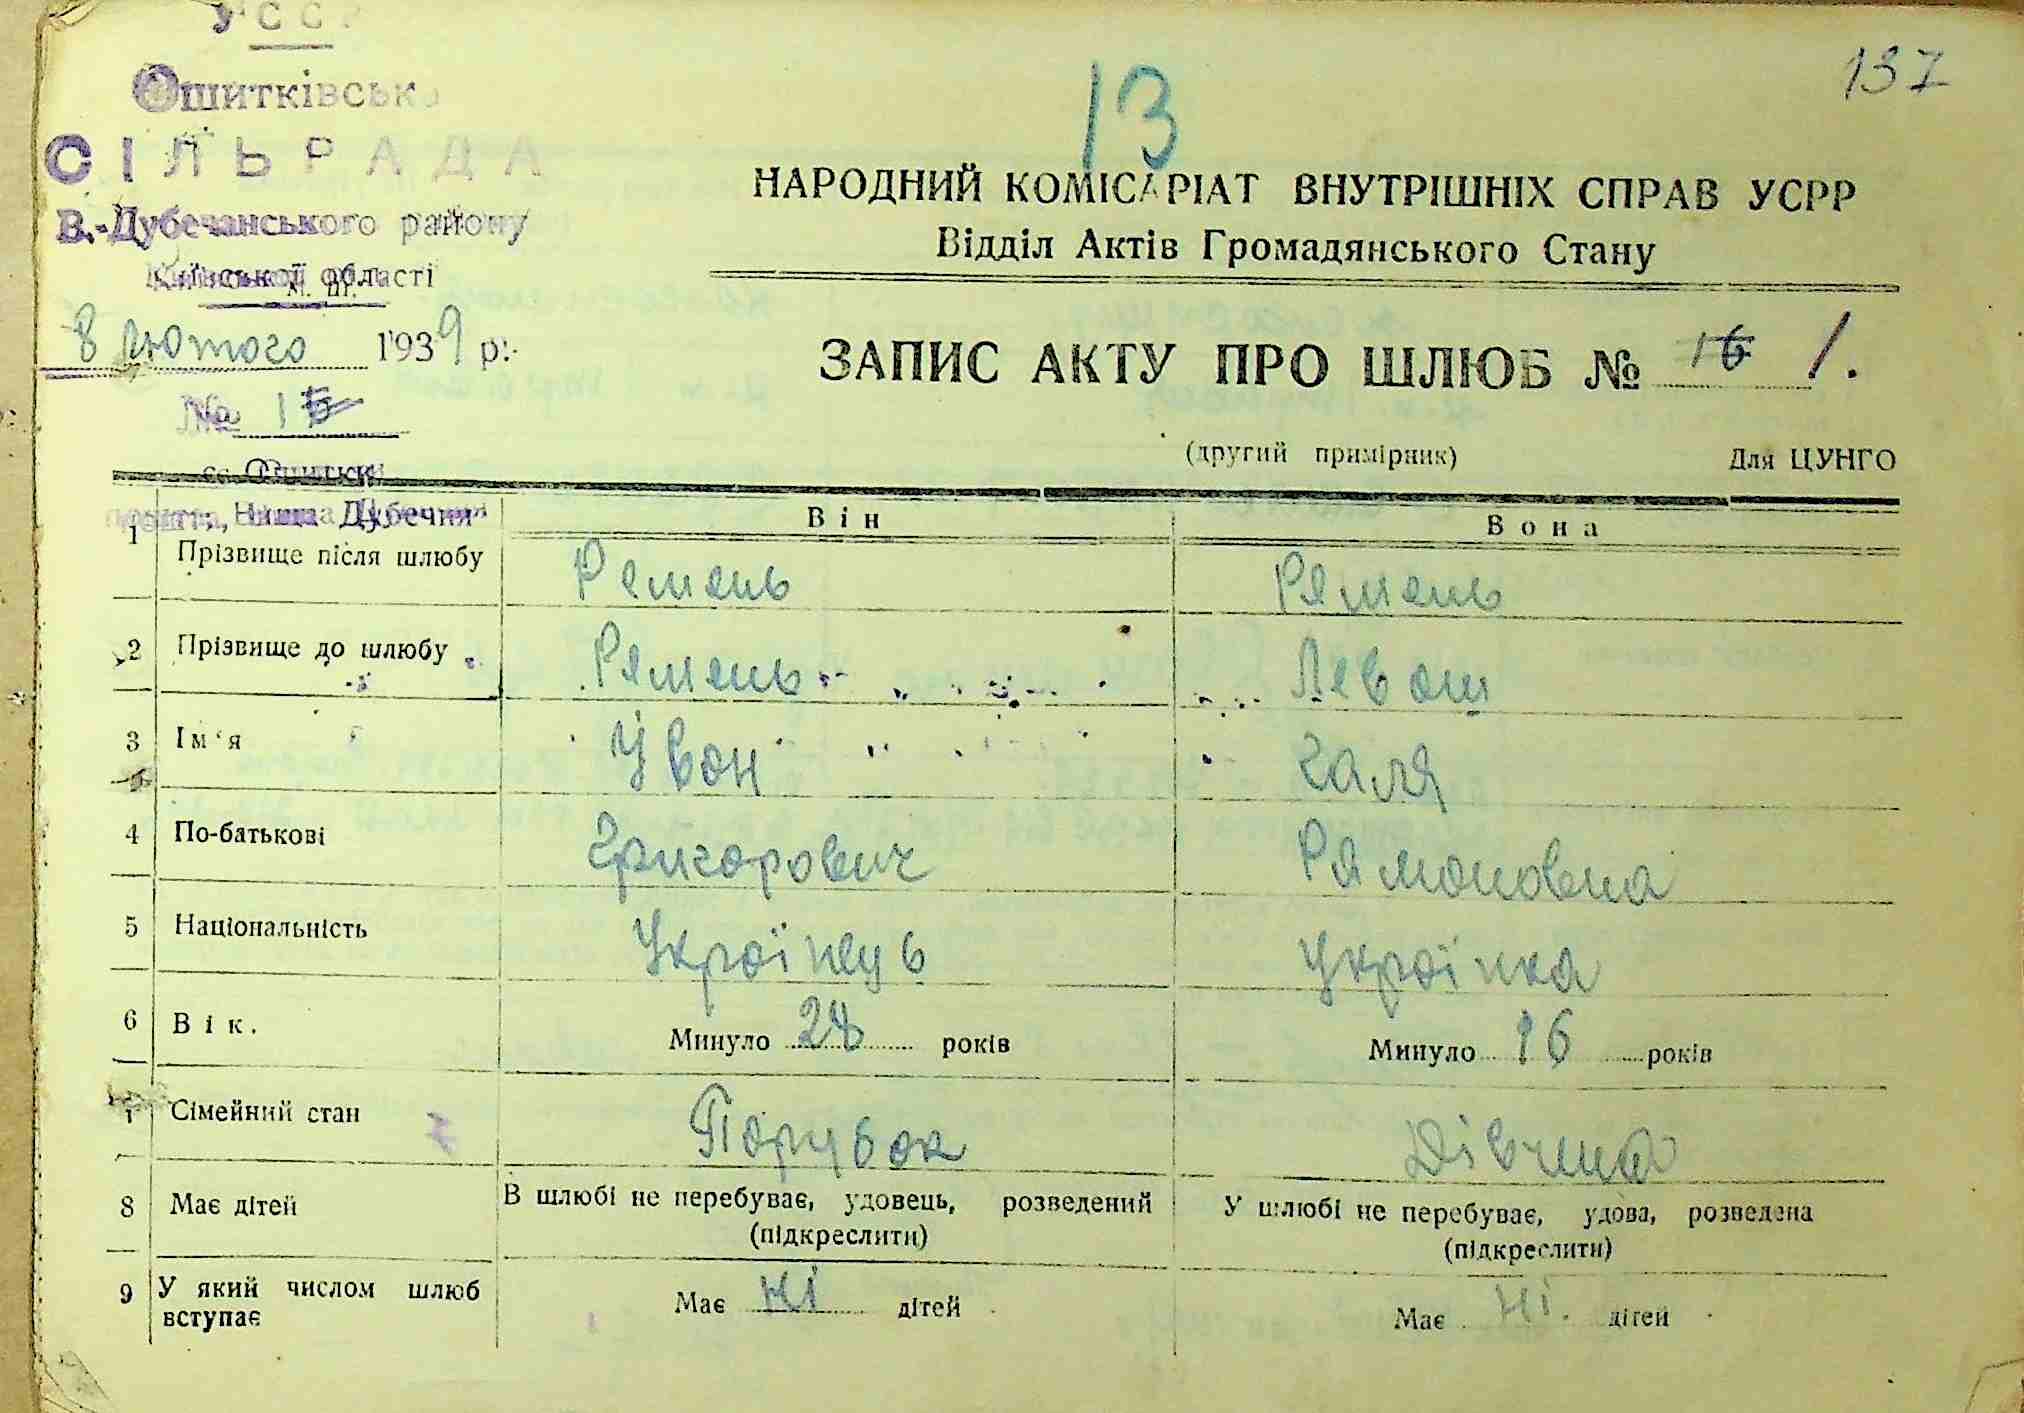 УССР
Ошитківська
СІЛЬРАДА
В.-Дубечанського району
Київської області
8 лютого 1939 р.
№ 15
с. Ошитки
пошт. Нища Дубечня
13
137
НАРОДНИЙ КОМІСАРІАТ ВНУТРІШНІХ СПРАВ УСРР
Відділ Актів Громадянського Стану
ЗАПИС АКТУ ПРО ШЛЮБ № 16 1.
(другий примірник) Для ЦУНГО
Він Вона
1 Прізвище після шлюбу Ремень Рямень
2 Прізвище до шлюбу Рямень Леваш
3 Ім'я Йван Галя
4 По-батькові Григорович Рямоновна
5 Національність Українець Українка
6 Вік. Минуло 28 років Минуло 16 років
7 Сімейний стан Парубок Дівчина
В шлюбі не перебуває, удовець, розведений У шлюбі не перебуває, удова, розведена
(підкреслити) (підкреслити)
8 Має дітей
9 У який числом шлюб Має ні дітей Має ні. дітей
вступає